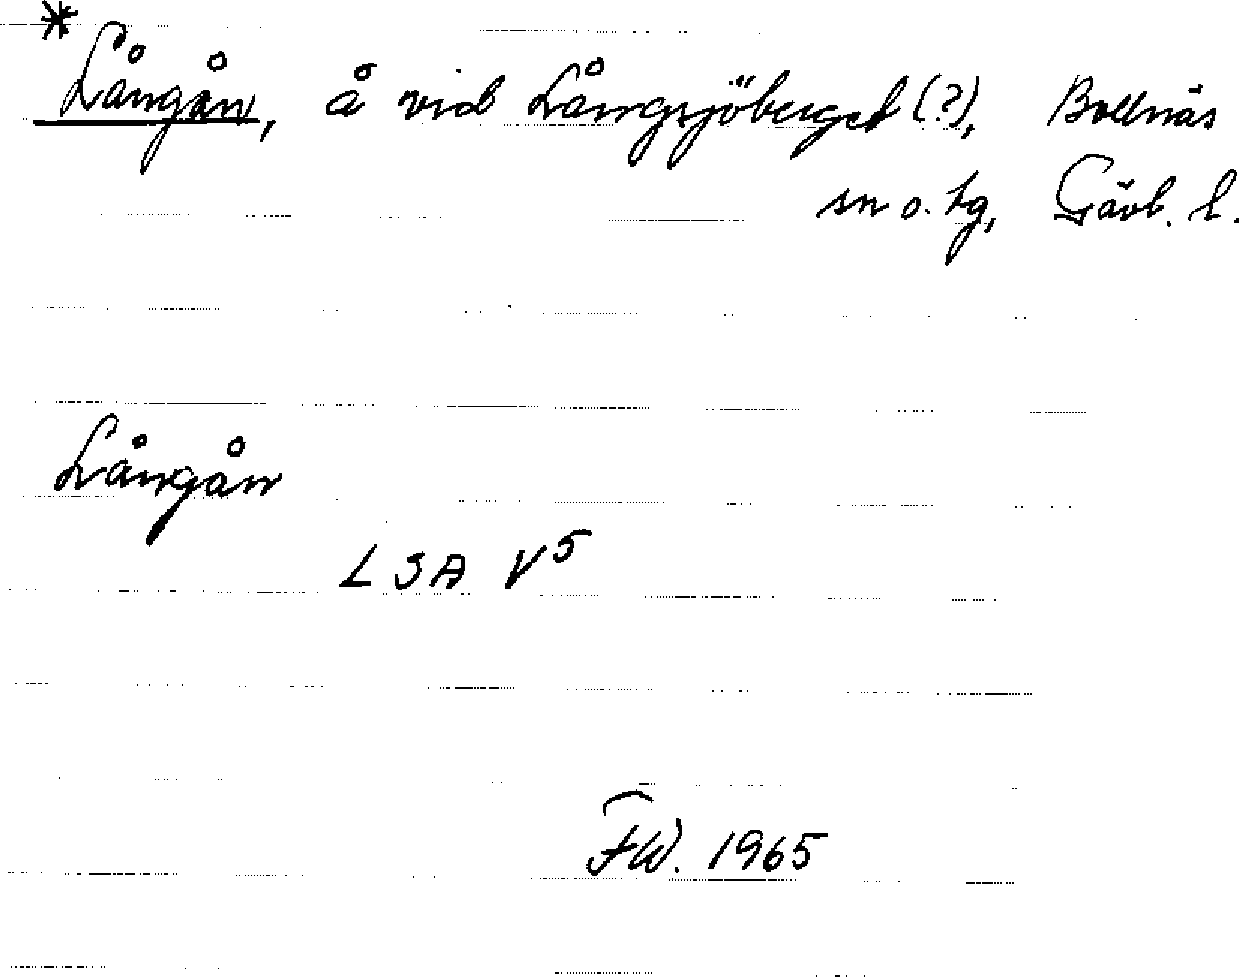 * Långån, å vid Långsjöberget (?), Bollnäs
sn o. tg, Gävl. l.
Långån
LSA V5
FW. 1965